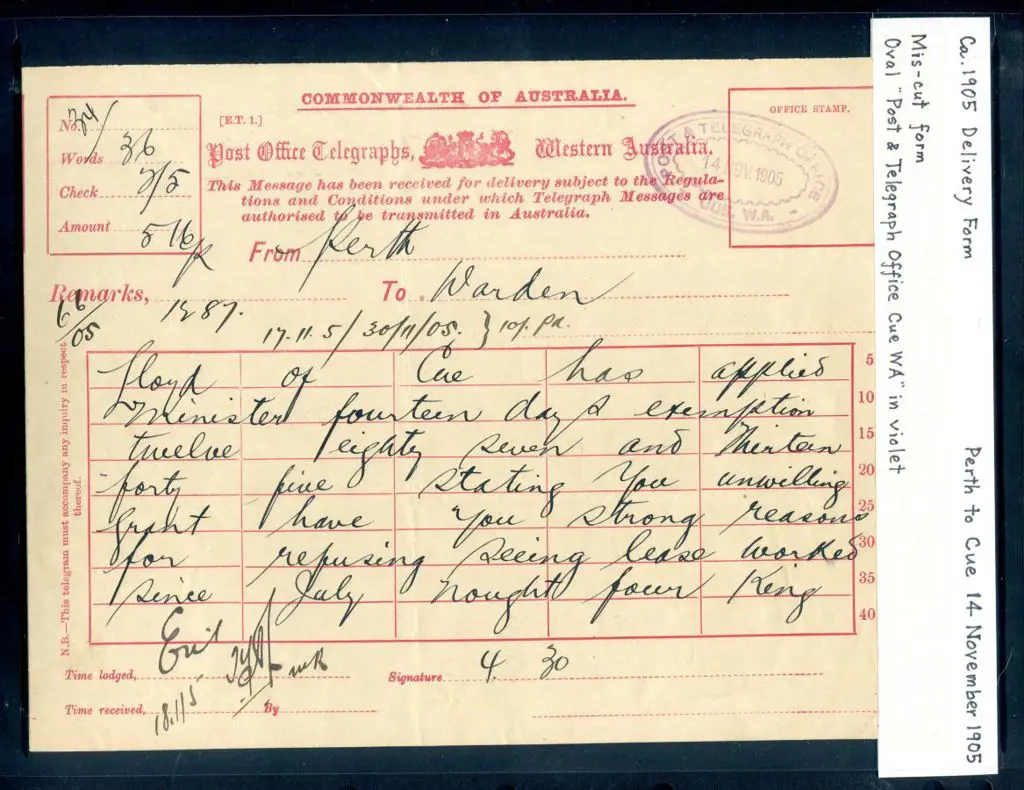 COMMONWEALTH OF AUSTRALIA.
[E.T. 1.]
OFFICE STAMP.
No. 34
Words 36
Check 2/5
Amount 516
Post Office Telegraphs, Western Australia.
POST & TELEGRAPH OFFICE
14 NOV. 1905
CUE, W.A.
This Message has been received for delivery subject to the Regula-
tions and Conditions under which Telegraph Messages are
authorised to be transmitted in Australia.
From Perth
Remarks, 1287. To Warden
66/05
17.11.5/30/11/05.
Lloyd of Cue has applied 5
Minister fourteen days exemption 10
twelve eighty seven and thirteen 15
forty five stating you unwilling 20
grant have you strong reasons 25
for refusing seeing lease worked 30
since July nought four King 35
40
N.B.—This telegram must accompany any inquiry in respect
thereof.
Time lodged,
Signature 4. 30
Time received, 18.11.5 By
Ca. 1905 Delivery Form Perth to Cue 14 November 1905
Mis-cut form
Oval "Post & Telegraph Office Cue WA" in violet